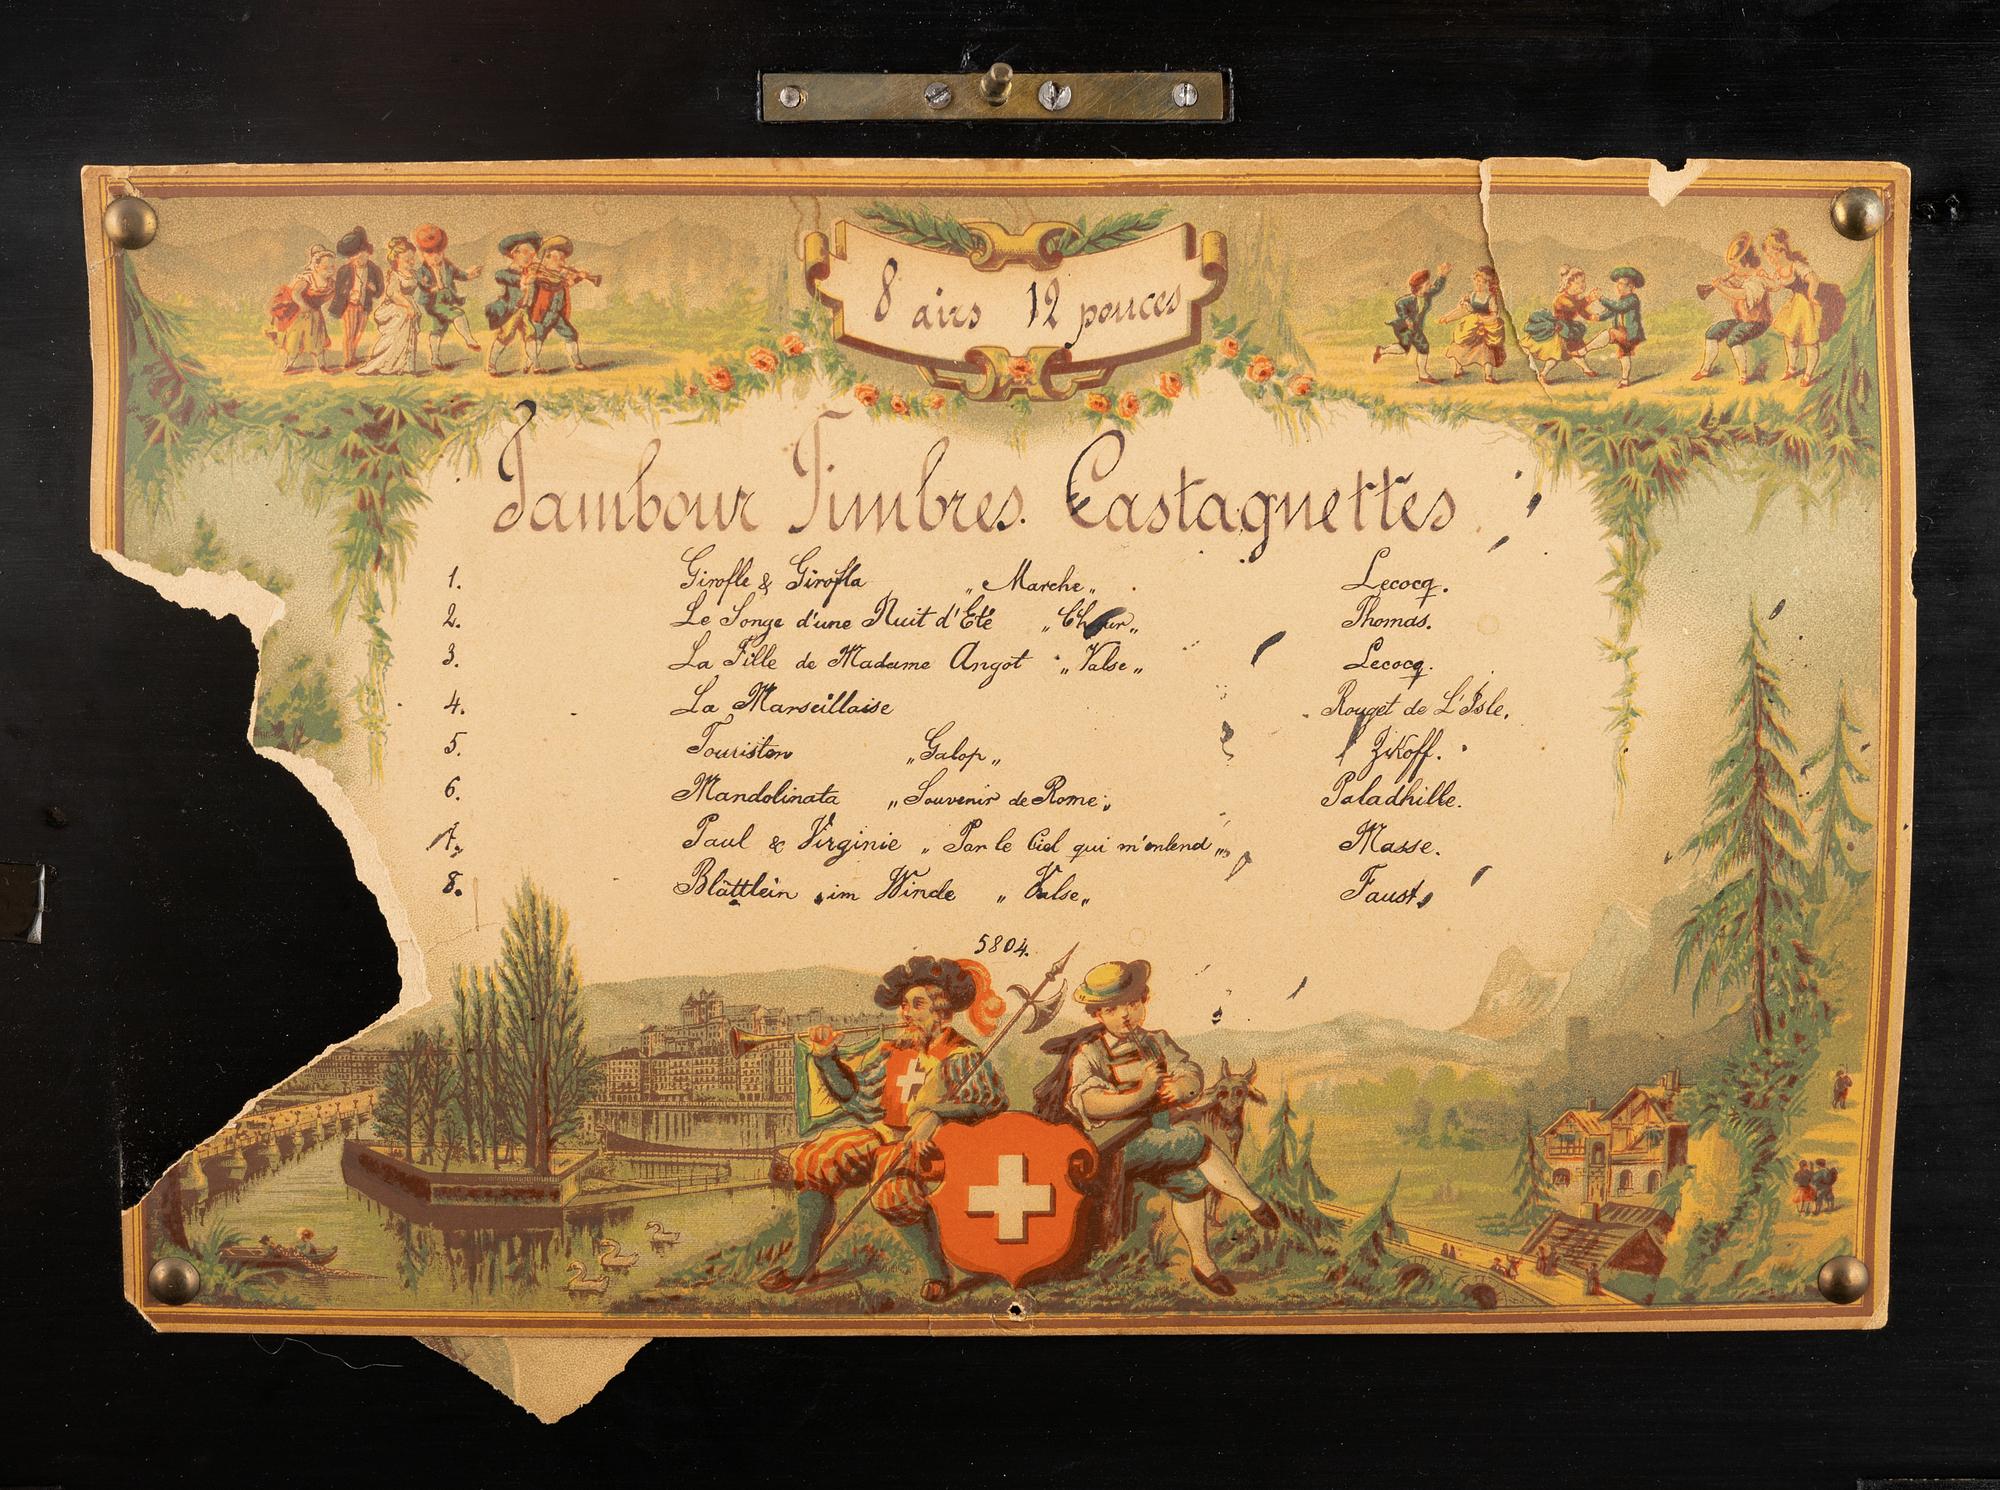 8 airs 12 pouces
Tambour Timbres. Castagnettes
1. Girofle & Girofla „ Marche „ Lecocq.
2. Le Songe d'une Nuit d'Eté „ Chœur „ Thomas.
3. La Fille de Madame Angot „ Valse „ Lecocq.
4. La Marseillaise Rouget de L'Isle.
5. Touristen „ Galop „ Zikoff.
6. Mandolinata „ Souvenir de Rome „ Paladhille.
7. Paul & Virginie „ Par le Ciel qui m'entend „ Masse.
8. Blättlein im Winde „ Valse „ Faust.
5804.